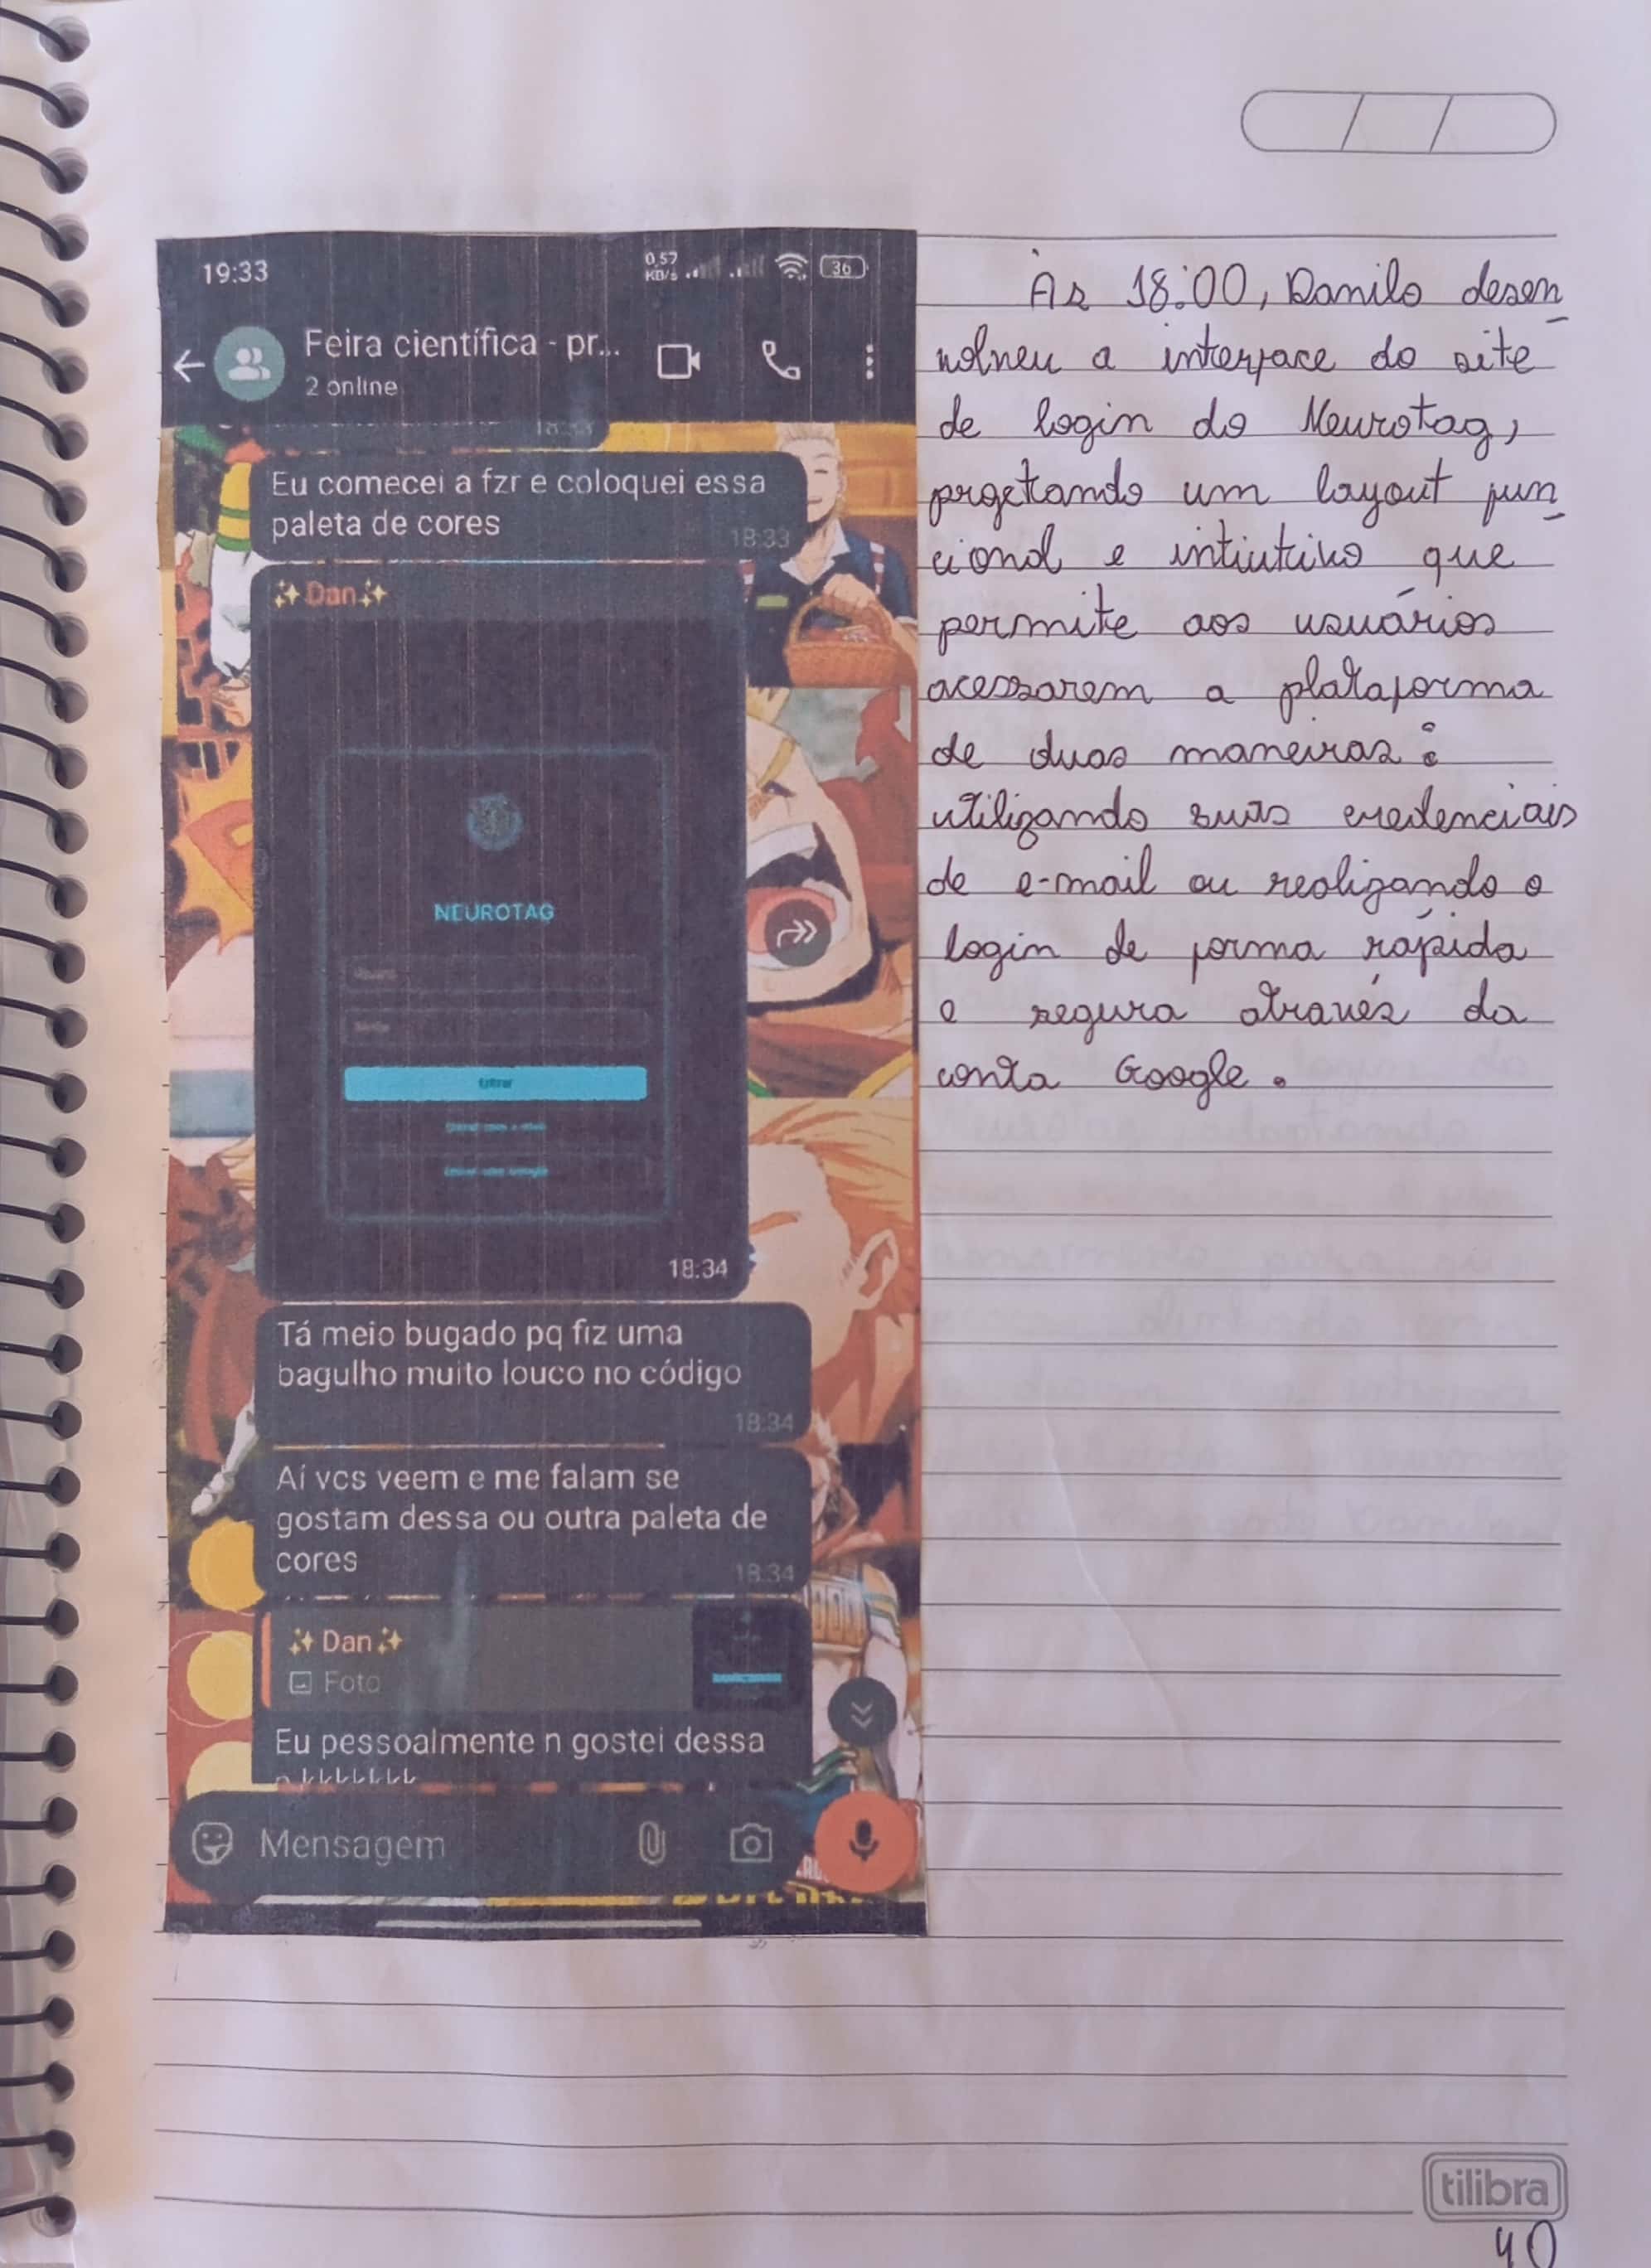 19:33
0,57
KB/s
36
Feira científica - pr...
2 online
Eu comecei a fzr e coloquei essa
paleta de cores
18:33
✨Dan✨
NEUROTAG
Entrar
18:34
Tá meio bugado pq fiz uma
bagulho muito louco no código
18:34
Aí vcs veem e me falam se
gostam dessa ou outra paleta de
cores
18:34
✨Dan✨
Foto
Eu pessoalmente n gostei dessa
Mensagem
Às 18:00, Danilo desen
volveu a interface do site
de login do Neurotag,
projetando um layout fun
cional e intiutivo que
permite aos usuários
acessarem a plataforma
de duas maneiras:
utilizando suas credenciais
de e-mail ou realizando o
login de forma rápida
e segura através da
conta Google.
tilibra
40